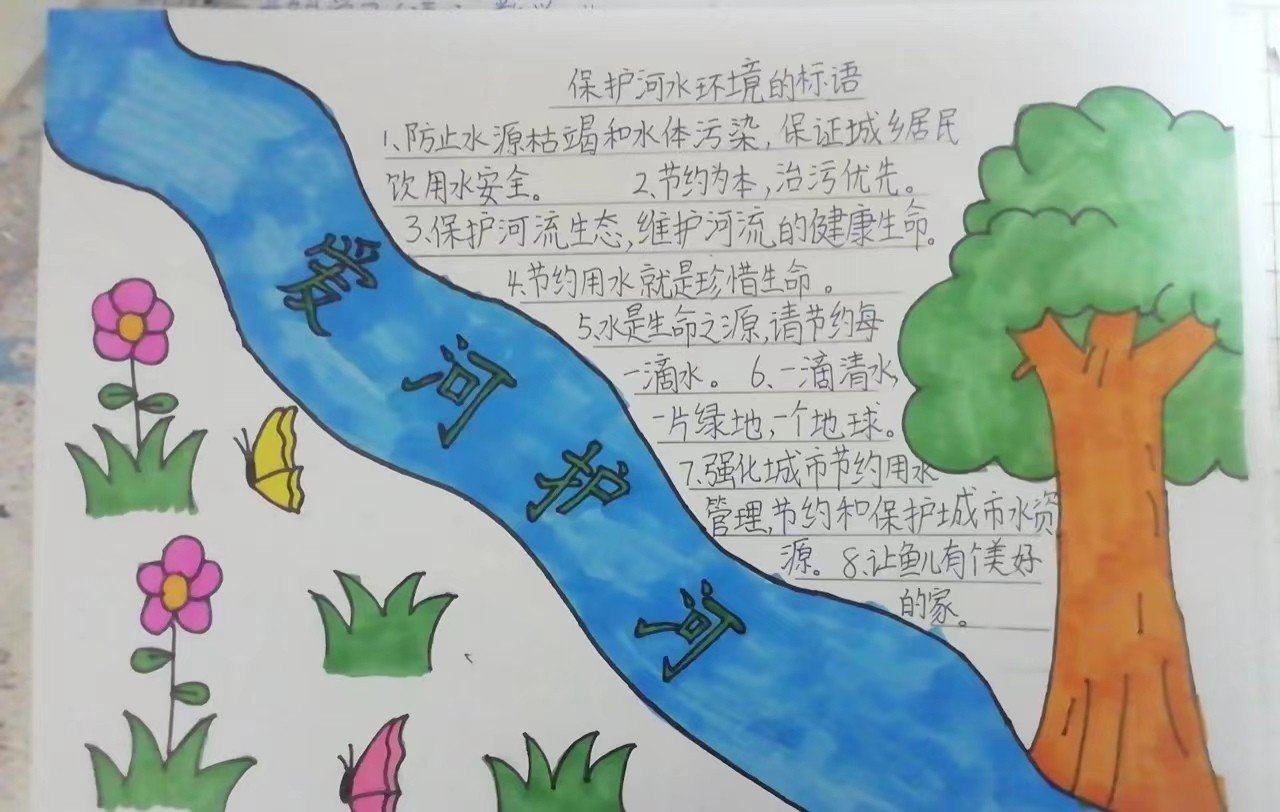 保护河水环境的标语
1、防止水源枯竭和水体污染，保证城乡居民
饮用水安全。 2、节约为本，治污优先。
3、保护河流生态，维护河流的健康生命。
4、节约用水就是珍惜生命。
5、水是生命之源，请节约每
一滴水。 6、一滴清水，
一片绿地，一个地球。
7、强化城市节约用水
管理，节约和保护城市水资
源。 8、让鱼儿有个美好
的家。
爱河护河